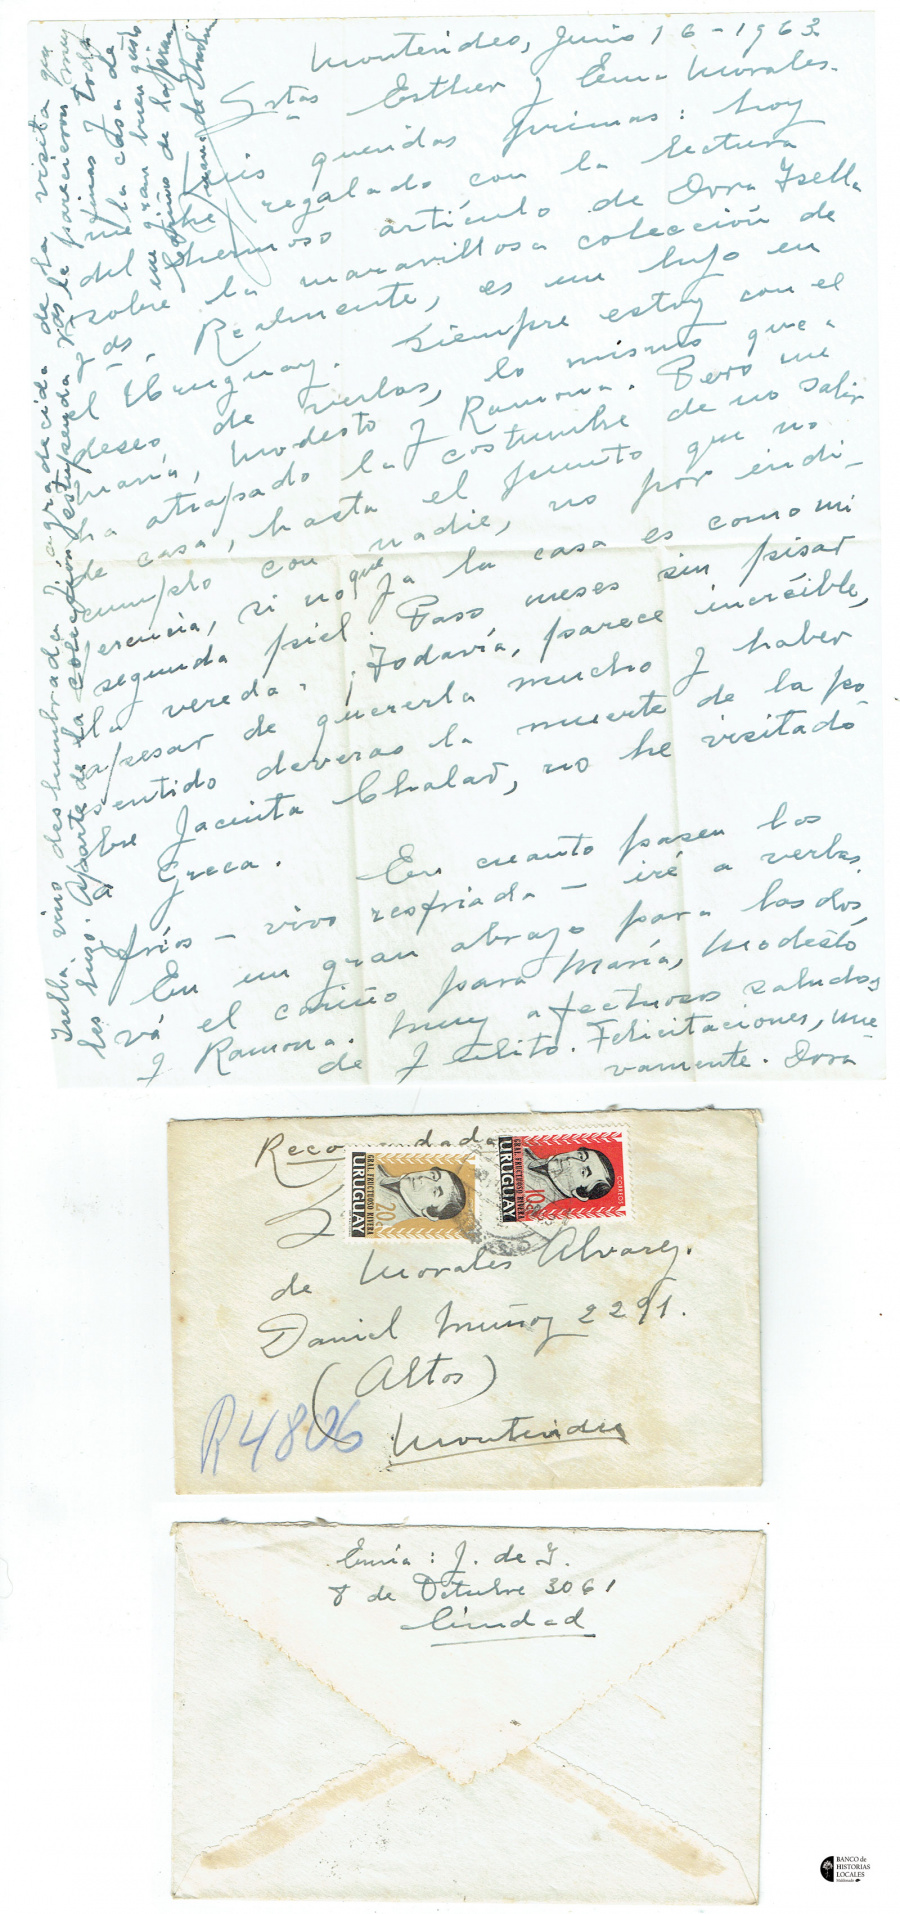 Montevideo, Junio 16-1963
Srtas Esther y Ema Morales.
Mis queridas primas: hoy
me he regalado con la lectura
del hermoso artículo de Dora Isella
sobre la maravillosa colección de
Vds. Realmente, es un lujo en
el Uruguay. Siempre estoy con el
deseo de verlas, lo mismo que a
María, Modesto y Ramona. Pero me
ha atrapado la costumbre de no salir
de casa, hasta el punto que no
cumplo con nadie, no por indi-
erencia, si no que ya la casa es como mi
segunda piel. Paso meses sin pisar
la vereda. ¡Todavía, parece increíble,
apesar de quererla mucho y haber
sentido deveras la muerte de la po
bre Jacinta Chalar, no he visitado
a Greca. En cuanto pasen los
fríos - vivo resfriada - iré a verlas.
En un gran abrazo para las dos,
vá el cariño para María, Modesto
y Ramona. Muy afectuosos saludos
de Julito. Felicitaciones, nue
vamente. Dora
Isella vino deslumbrada y agradecida de la visita que
les hizo. Aparte de la colección estupenda Vds le parecieron muy
finas y toda
la casa de
un gran buen gusto
Cariños de la prima
Juana de Ibarbourou
Recomendada
GRAL. FRUCTUOSO RIVERA
URUGUAY
20c
GRAL. FRUCTUOSO RIVERA
URUGUAY
CORREOS
de Morales Alvarez.
Daniel Muñoz 2291.
(Altos)
R4806
Montevideo
Envía: J. de I.
8 de Octubre 3061
Ciudad
BANCO de
HISTORIAS
LOCALES
Maldonado